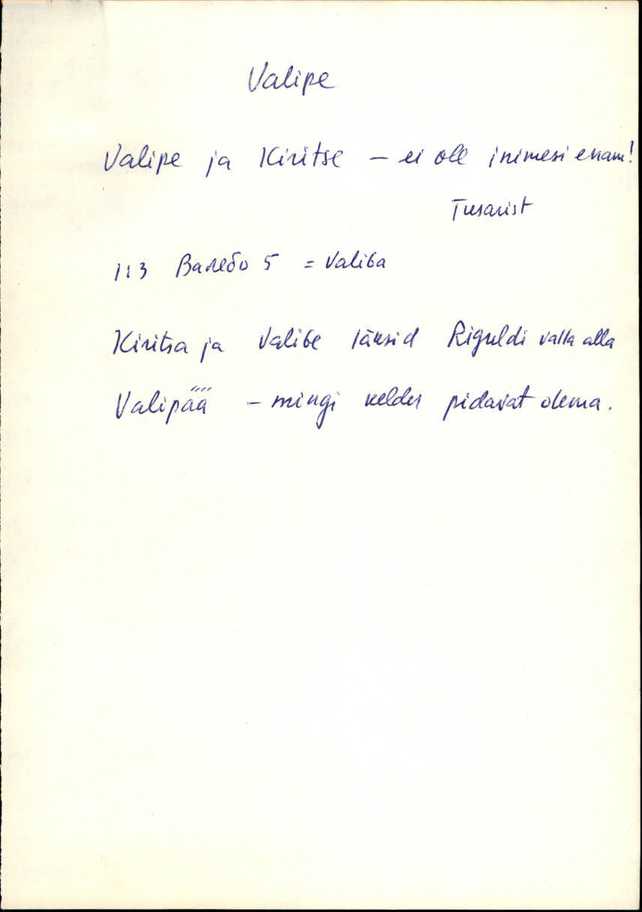 Valipe
Valipe ja Kiritse – ei ole inimesi enam!
Tusarist
113 Валебо 5 = Valiba
Kiritsa ja Valibe läksid Riguldi valla alla
Valipää – mingi kelder pidavat olema.